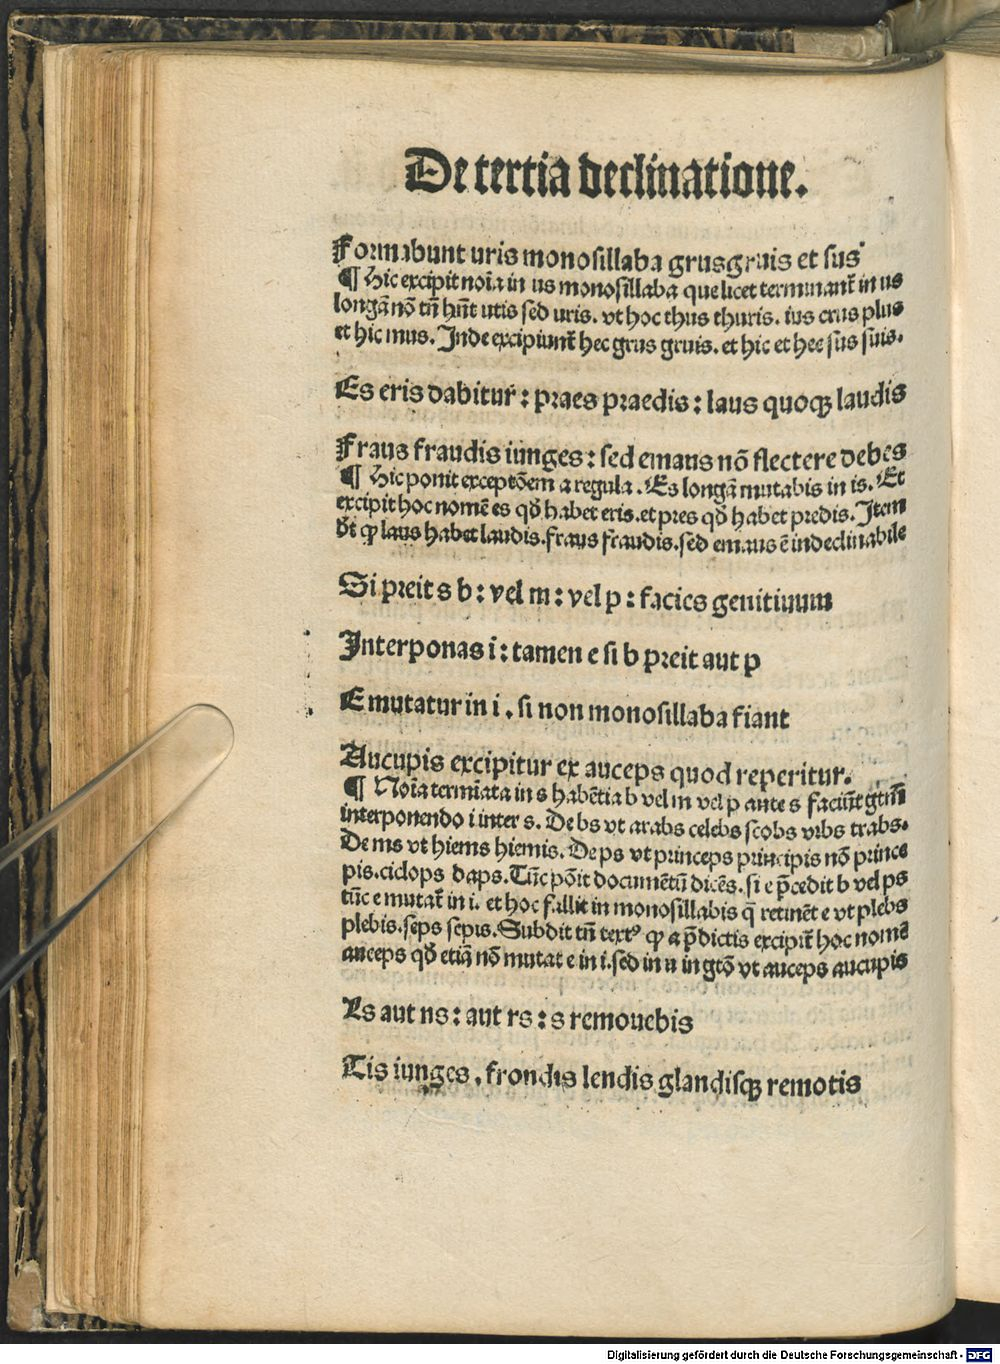 De tertia declinatione.
Formabunt uris monosillaba grus gruis et sus
¶ Hic excipit noīa in us monosillaba que licet terminant᷑ in us
longā nō tn̄ hn̄t utis sed uris. vt hoc thus thuris. ius crus plus
et hic mus. Inde excipiunt᷑ hec grus gruis. et hic et hec sus suis.
Es eris dabitur : praes praedis : laus quoqꝫ laudis
Fraus fraudis iunges : sed emaus nō flectere debes
¶ Hic ponit exceptōem a regula. Es longā mutabis in is. Et
excipit hoc nomē es qđ habet eris. et pres qđ habet predis. Item
ꝙ laus habet laudis. fraus fraudis. sed emaus ē indeclinabile
Si preit s b : vel m : vel p : facies genitiuum
Interponas i : tamen e si b preit aut p
E mutatur in i. si non monosillaba fiant
Aucupis excipitur ex auceps quod reperitur.
¶ Noīa termīata in s habētia b vel m vel p ante s faciūt gtm̄
interponendo i inter s. De bs vt arabs celebs scobs vrbs trabs.
De ms vt hiems hiemis. De ps vt princeps principis nō prince
pis. ciclops daps. Tūc pōit documētū dicēs. si e p̄cedit b vel ps
tūc e mutat᷑ in i. et hoc fallit in monosillabis q̄ retinēt e vt plebs
plebis. seps sepis. Subdit tn̄ textꝰ ꝙ a p̄dictis excipit᷑ hoc nomē
auceps qđ etiā nō mutat e in i. sed in u in gtō vt auceps aucupis
Ls aut ns : aut rs : s remouebis
Tis iunges. frondis lendis glandisqꝫ remotis
Digitalisierung gefördert durch die Deutsche Forschungsgemeinschaft - DFG